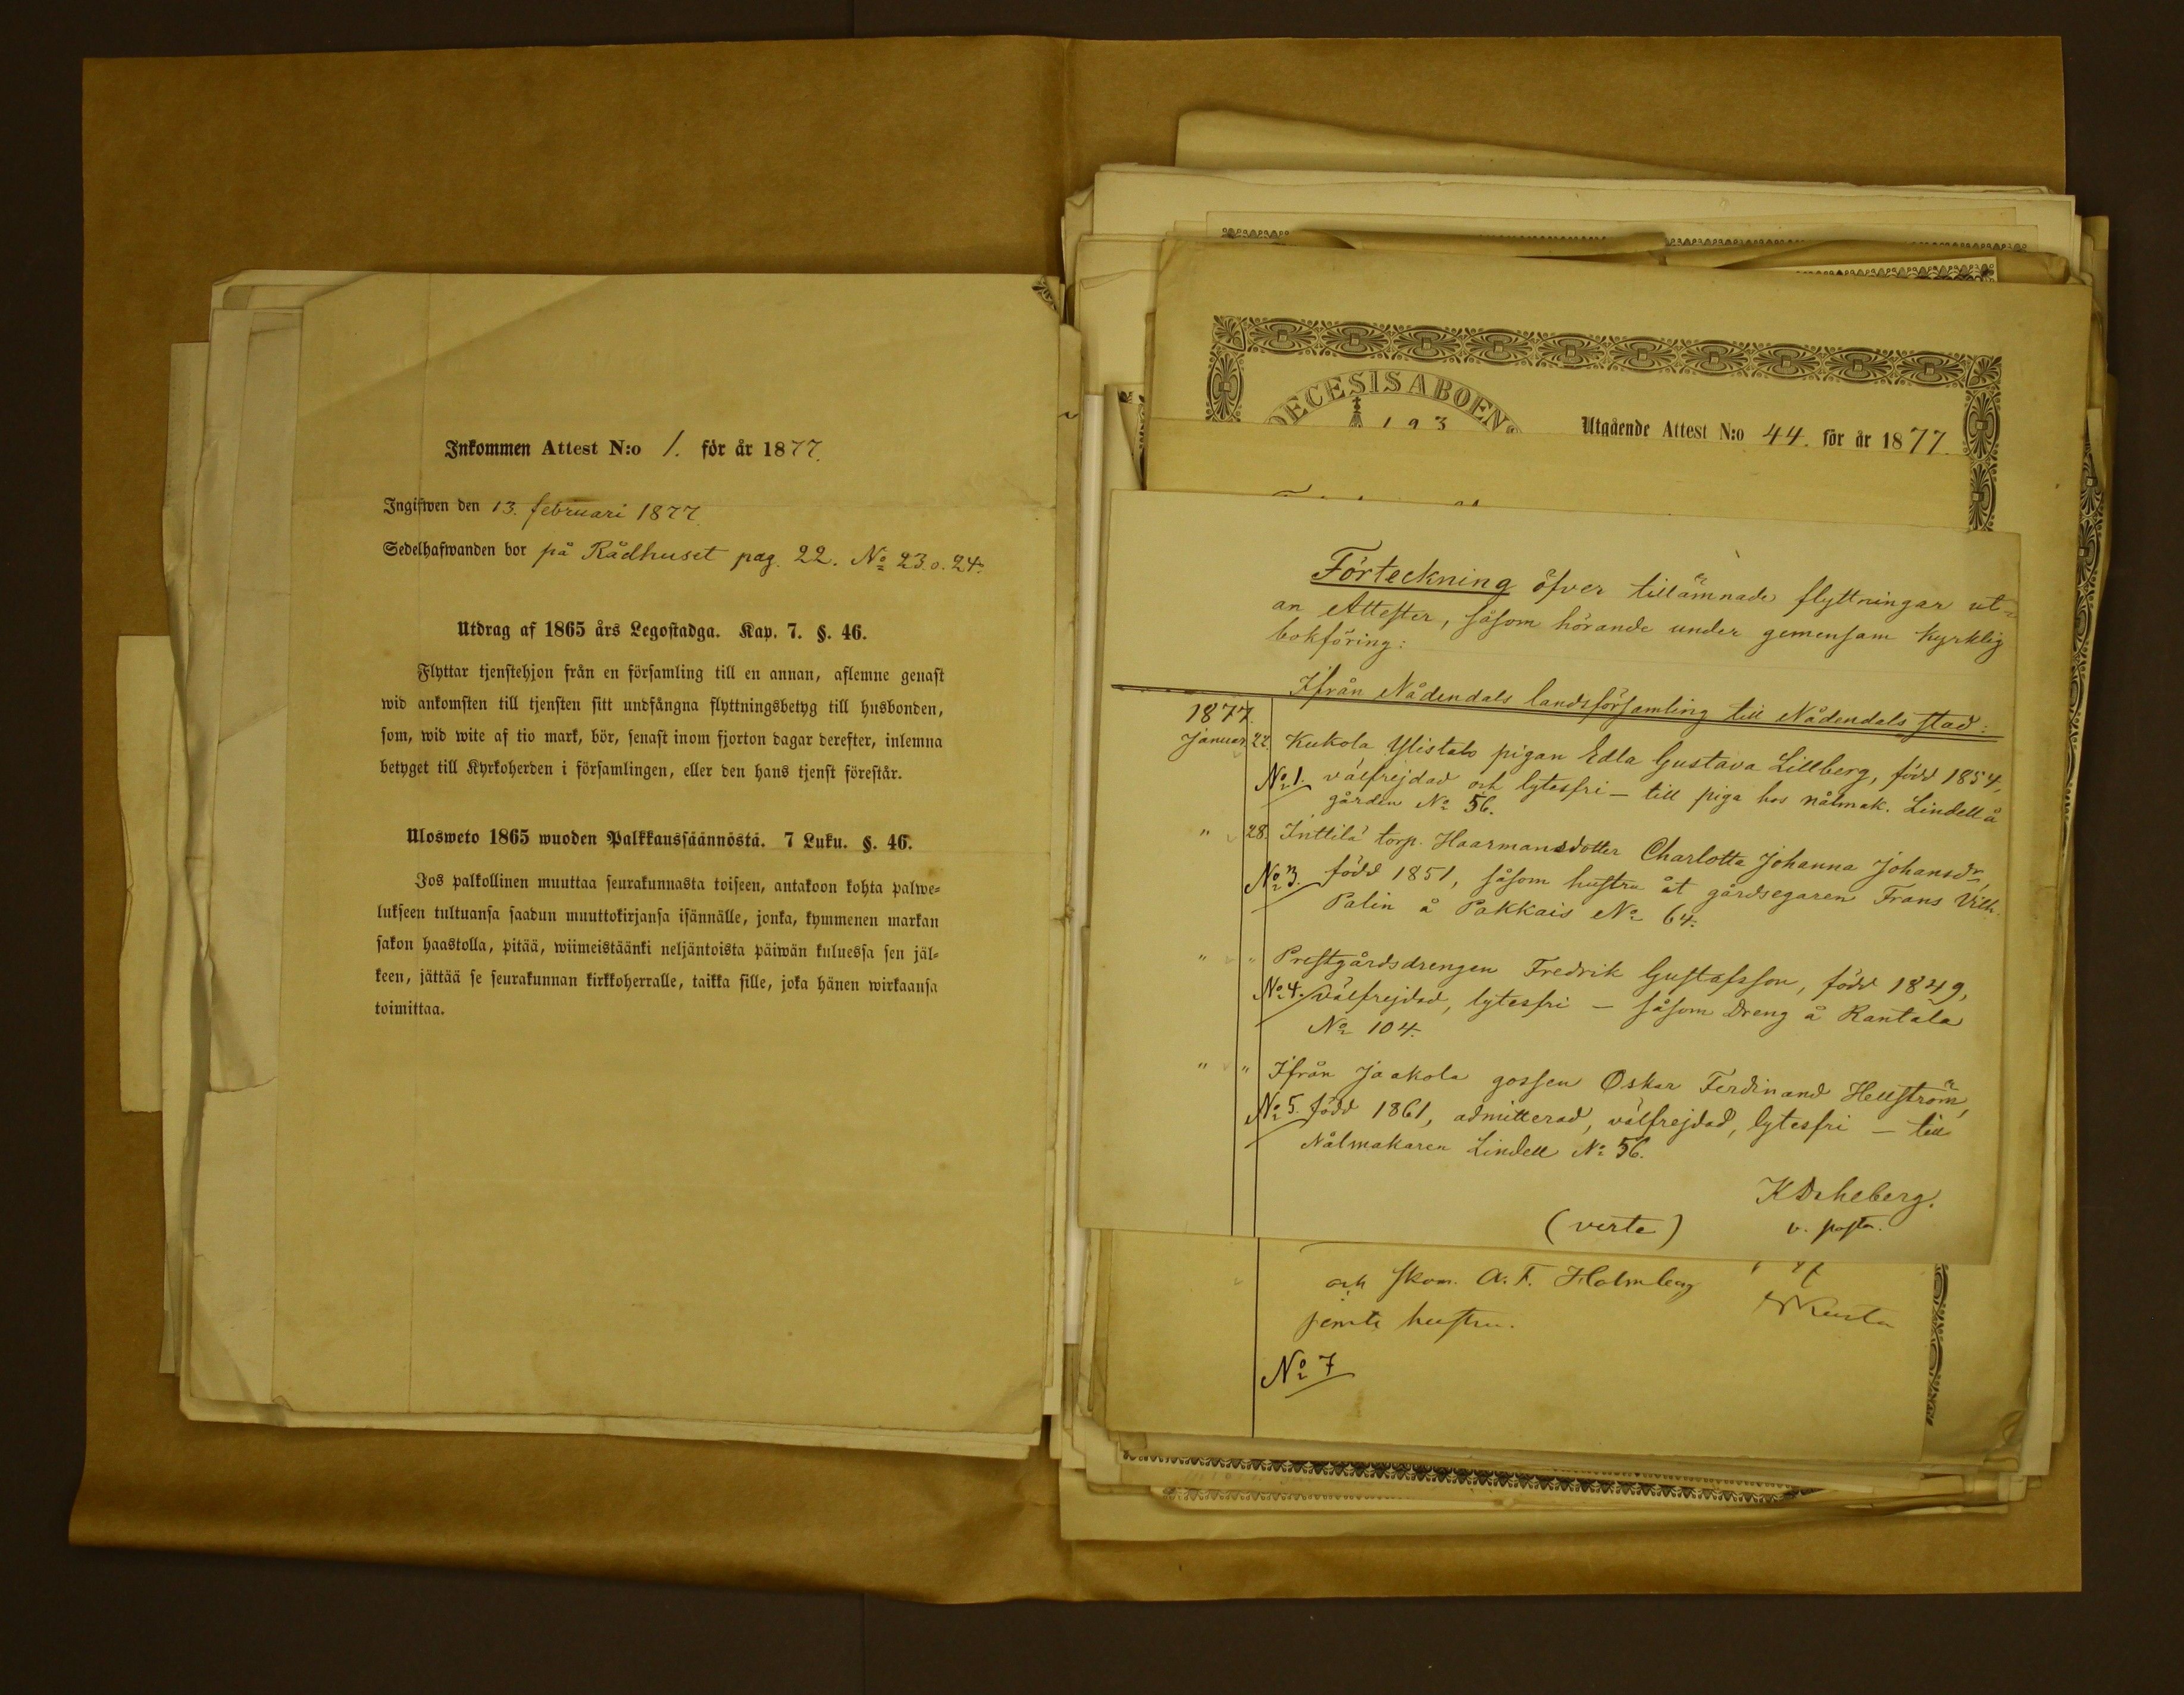 Inkommen Attest N:o 1. för år 1877.
Ingifwen den 13. februari 1877.
Sedelhafwanden bor på Rådhuset pag. 22. No 23. o. 24.
Utdrag af 1865 års Legostadga. Kap. 7. §. 46.
Flyttar tjenstehjon från en församling till en annan, aflemne genast
wid ankomsten till tjensten sitt undfångna flyttningsbetyg till husbonden,
som, wid wite af tio mark, bör, senast inom fjorton dagar derefter, inlemna
betyget till Kyrkoherden i församlingen, eller den hans tjenst förestår.
Ulosweto 1865 wuoden Palkkaussäännöstä. 7 Luku. §. 46.
Jos palkollinen muuttaa seurakunnasta toiseen, antakoon kohta palwe-
lukseen tultuansa saadun muuttokirjansa isännälle, jonka, kymmenen markan
sakon haastolla, pitää, wiimeistäänki neljäntoista päiwän kuluessa sen jäl-
keen, jättää se seurakunnan kirkkoherralle, taikka sille, joka hänen wirkaansa
toimittaa.
DECESIS ABOENS
193
Utgående Attest N:o 44. för år 1877.
Förteckning öfver tillämnade flyttningar ut-
an Attester, såsom hörande under gemensam kyrklig
bokföring:
Ifrån Nådendals landsförsamling till Nådendals stad:
1877.
Januar. 22. Kukola Ylistalo pigan Edla Gustava Lillberg, född 1854,
No 1. välfrejdad och lytesfri – till piga hos nålmak. Lindell å
gården No 56.
" 28. Inttilä torp. Haarmansdotter Charlotta Johanna Johansdr,
No 3. född 1851, såsom hustru åt gårdsegaren Frans Vilh.
Palin å Pakkais No 64.
" " Prestgårdsdrengen Fredrik Gustafsson, född 1849,
No 4. välfrejdad, lytesfri – såsom dreng å Rantala
No 104.
" " Ifrån Jaakola gossen Oskar Ferdinand Hellström,
No 5. född 1861, admitterad, välfrejdad, lytesfri – till
Nålmakaren Lindell No 56.
(verte)
v. pastor.
och skom. A. F. Holmberg
jemte hustru.
No 7